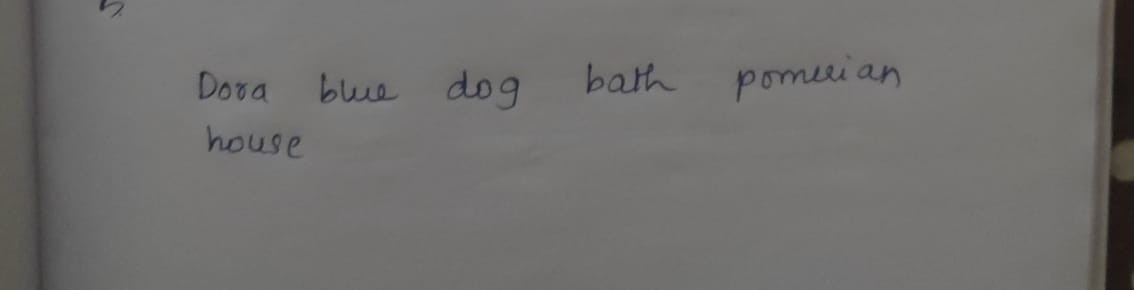 Dora blue dog bath pomerian
house